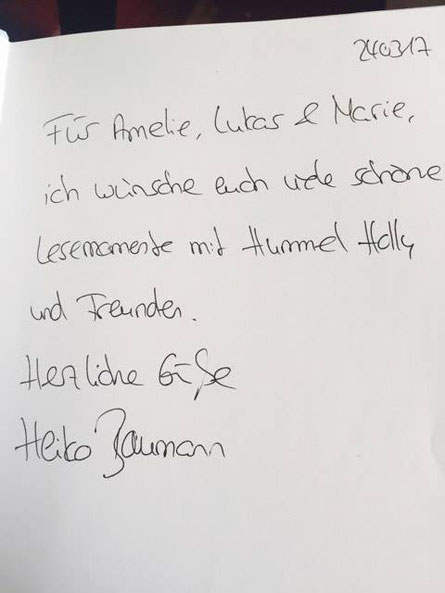 240317
Für Amelie, Lukas & Marie,
ich wünsche euch viele schöne
Lesemomente mit Hummel Holly
und Freunden.
Herzliche Grüße
Heiko Baumann